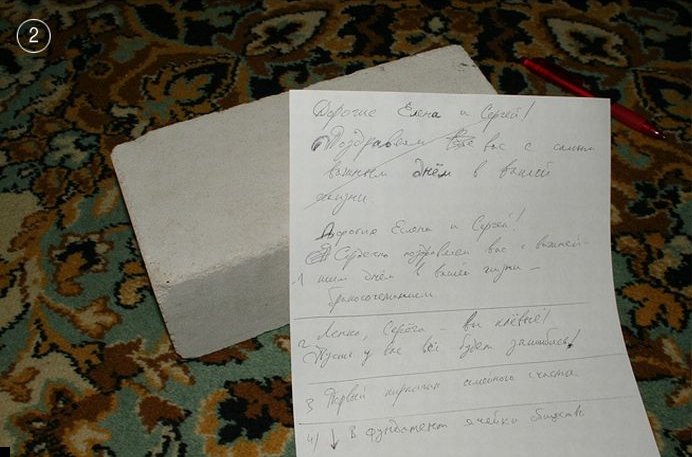 2
Дорогие Елена и Сергей!
Поздравляем вас с самым
важным днём в вашей
жизни
Дорогие Елена и Сергей!
Сердечно поздравляем вас с важней-
1 шим днём в вашей жизни –
бракосочетанием
2 Ленка, Серёга вы клёвые!
Пусть у вас всё будет зашибись!
3 Первый кирпичик семейного счастья
4) ↓ В фундамент ячейки общества